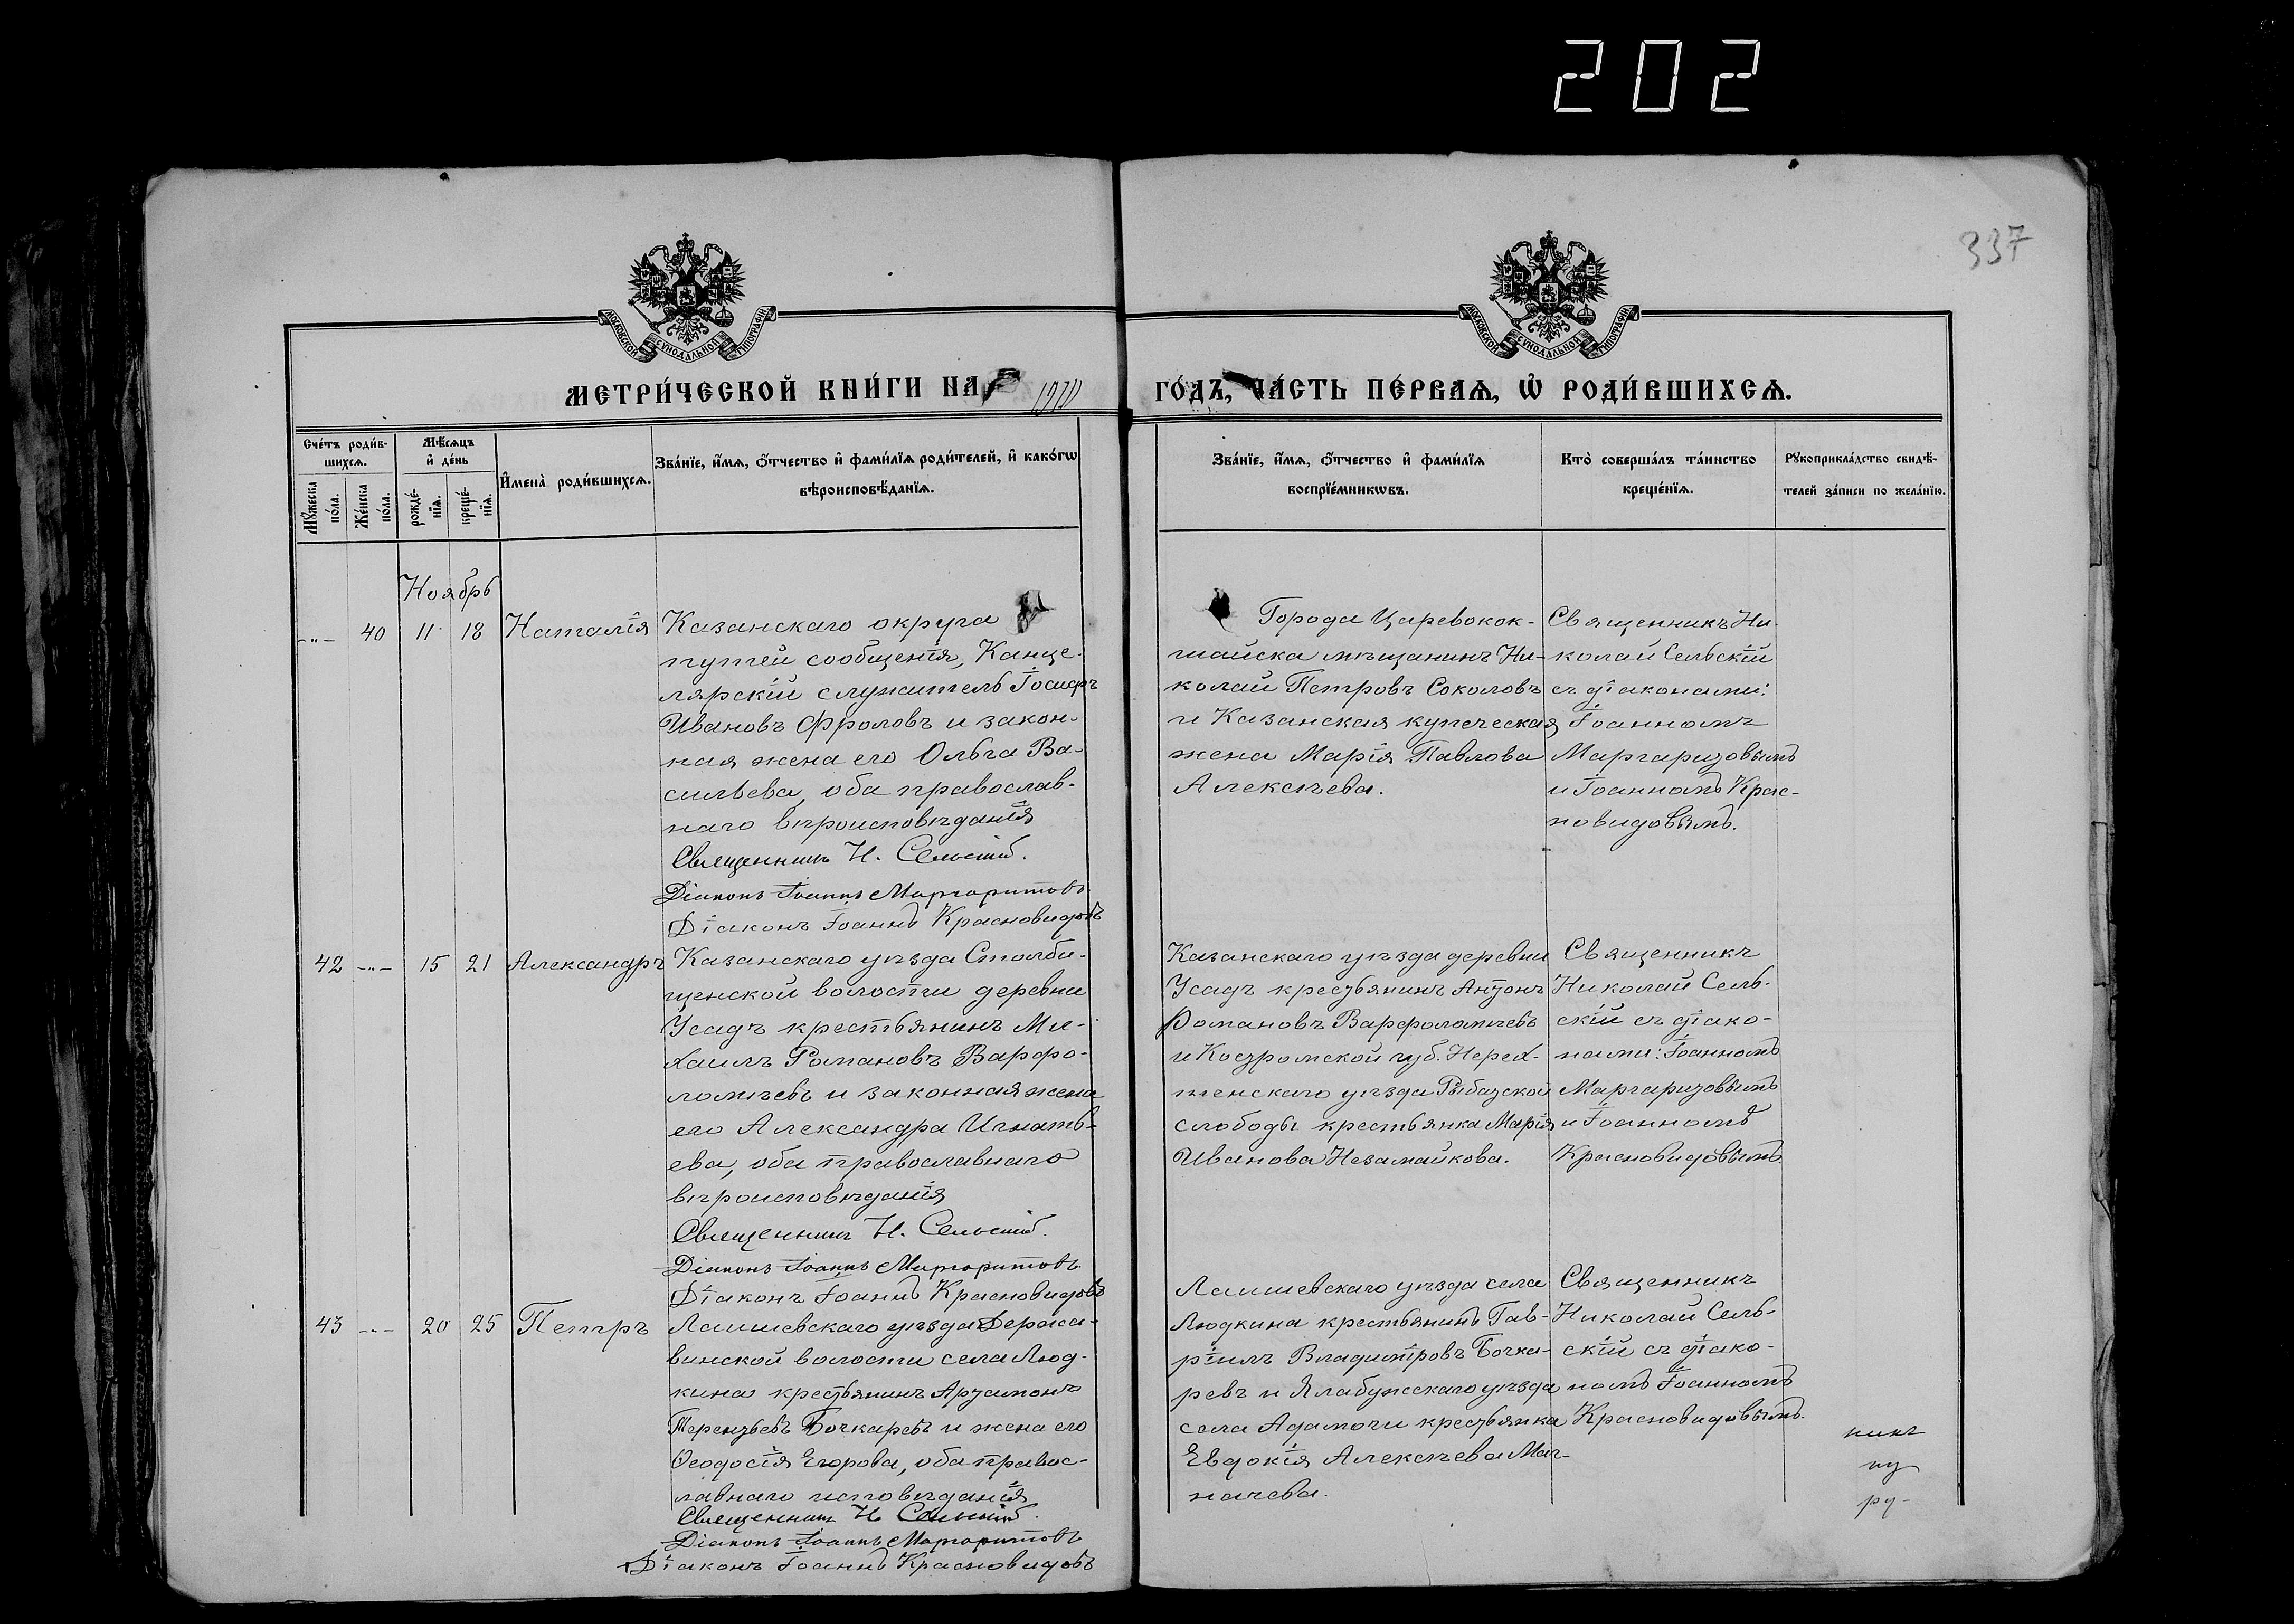 202
337
МОСКОВСКОЙ СѴНОДАЛЬНОЙ ТИПОГРАФІИ
МОСКОВСКОЙ СѴНОДАЛЬНОЙ ТИПОГРАФІИ
МЕТРИ́ЧЕСКОЙ КНИ́ГИ НА 1910
ГО́ДЪ, ЧА́СТЬ ПЕ́РВАѦ, Ѡ҆ РОДИ́ВШИХСѦ.
Сче́тъ роди́в-
шихсѧ.
Мꙋ́жеска
по́ла.
Же́нска
по́ла.
Мѣ́сѧцъ
и҆ де́нь
рожде́-
нїѧ.
креще́-
нїѧ.
И҆мена̀ роди́вшихсѧ.
Зва́нїе, и҆́мѧ, ѻ҆́тчество и҆ фами́лїѧ роди́телей, и҆ како́гѡ
вѣроисповѣ́данїѧ.
Зва́нїе, и҆́мѧ, ѻ҆́тчество и҆ фами́лїѧ
воспрїе́мникѡвъ.
Кто̀ соверша́лъ та́инство
креще́нїѧ.
Рꙋкоприкла́дство свидѣ́-
телей за́писи по жела́нїю.
Ноябрь
-„- 40 11 18 Наталія
Казанскаго округа
путей сообщенія, Канце-
лярскій служитель Іосифъ
Ивановъ Фроловъ и закон-
ная жена его Ольга Ва-
сильева, оба православ-
наго вѣроисповѣданія
Священникъ Н. Сельскій.
Діаконъ Іоаннъ Маргаритовъ.
Діаконъ Іоаннъ Красновидовъ
Города Царевокок-
шайска мѣщанинъ Ни-
колай Петровъ Соколовъ
и Казанская купеческая
жена Марія Павлова
Алексѣева.
Священникъ Ни-
колай Сельскій
съ діаконами:
Іоанномъ
Маргаритовымъ
и Іоанномъ Крас-
новидовымъ.
42 -„- 15 21 Александръ
Казанскаго уѣзда Столби-
щенской волости деревни
Усадъ крестьянинъ Ми-
хаилъ Романовъ Варфо-
ломѣевъ и законная жена
его Александра Игнать-
ева, оба православнаго
вѣроисповѣданія
Священникъ Н. Сельскій.
Діаконъ Іоаннъ Маргаритовъ.
Діаконъ Іоаннъ Красновидовъ
Казанскаго уѣзда деревни
Усадъ крестьянинъ Антонъ
Романовъ Варфоломѣевъ
и Костромской губ. Нерех-
тенскаго уѣзда Рыбацкой
слободы крестьянка Марія
Иванова Незамайкова.
Священникъ
Николай Сель-
скій съ діако-
нами: Іоанномъ
Маргаритовымъ
и Іоанномъ
Красновидовымъ.
43 -„- 20 25 Петръ
Лаишевскаго уѣзда Держа-
винской волости села Люд-
кина крестьянинъ Артамонъ
Терентьевъ Бочкаревъ и жена его
Ѳеодосія Егорова, оба правос-
лавнаго исповѣданія
Священникъ Н. Сельскій.
Діаконъ Іоаннъ Маргаритовъ
Діаконъ Іоаннъ Красновидовъ
Лаишевскаго уѣзда села
Людкина крестьянинъ Гав-
ріилъ Владиміровъ Бочка-
ревъ и Елабужскаго уѣзда
села Адамочи крестьянка
Евдокія Алексѣева Мат-
начева.
Священникъ
Николай Сель-
скій съ діако-
номъ Іоанномъ
Красновидовымъ.
никъ
ну
ру-